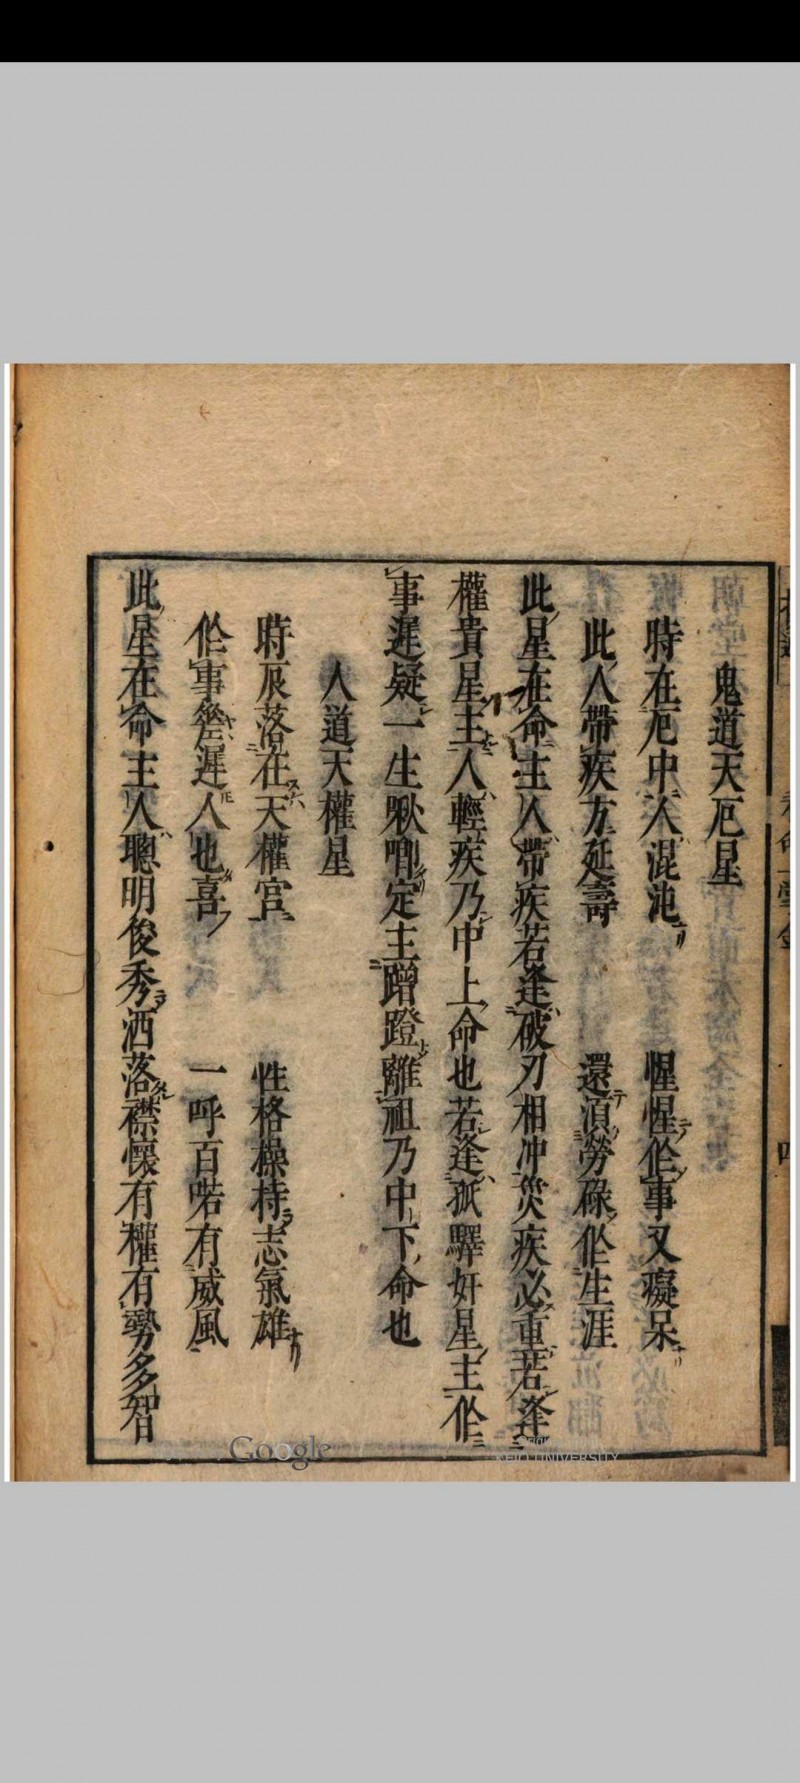 鬼道天厄星
時在厄中人混沌 惺惺作事又癡呆
此人帶疾方延壽 還須勞碌作生涯
此星在命主人帶疾若逢破刃相冲災疾必重若逢
權貴星主人輕疾乃中上命也若逢孤驛奸星主作
事遲疑一生啾唧定主蹭蹬離祖乃中下命也
人道天權星
時辰落在天權宮 性格操持志氣雄
作事 遲人也喜 一呼百喏有威風
此星在命主人聰明俊秀洒落襟懷有權有勢多智
Google
KEIO UNIVERSITY